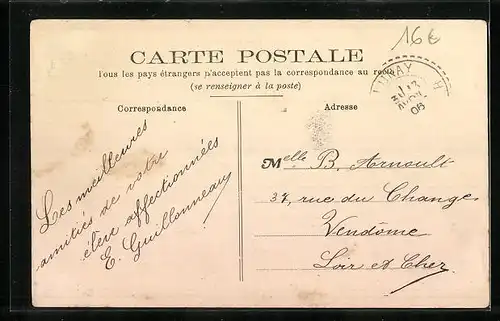 16€
CARTE POSTALE
Tous les pays étrangers n'acceptent pas la correspondance au recto
(se renseigner à la poste)
Correspondance
Les meilleures
amitiés de votre
élève affectionnée
E. Guillonneau
Adresse
Melle B. Arnoult
37, rue du Change
Vendôme
Loir et Cher
06